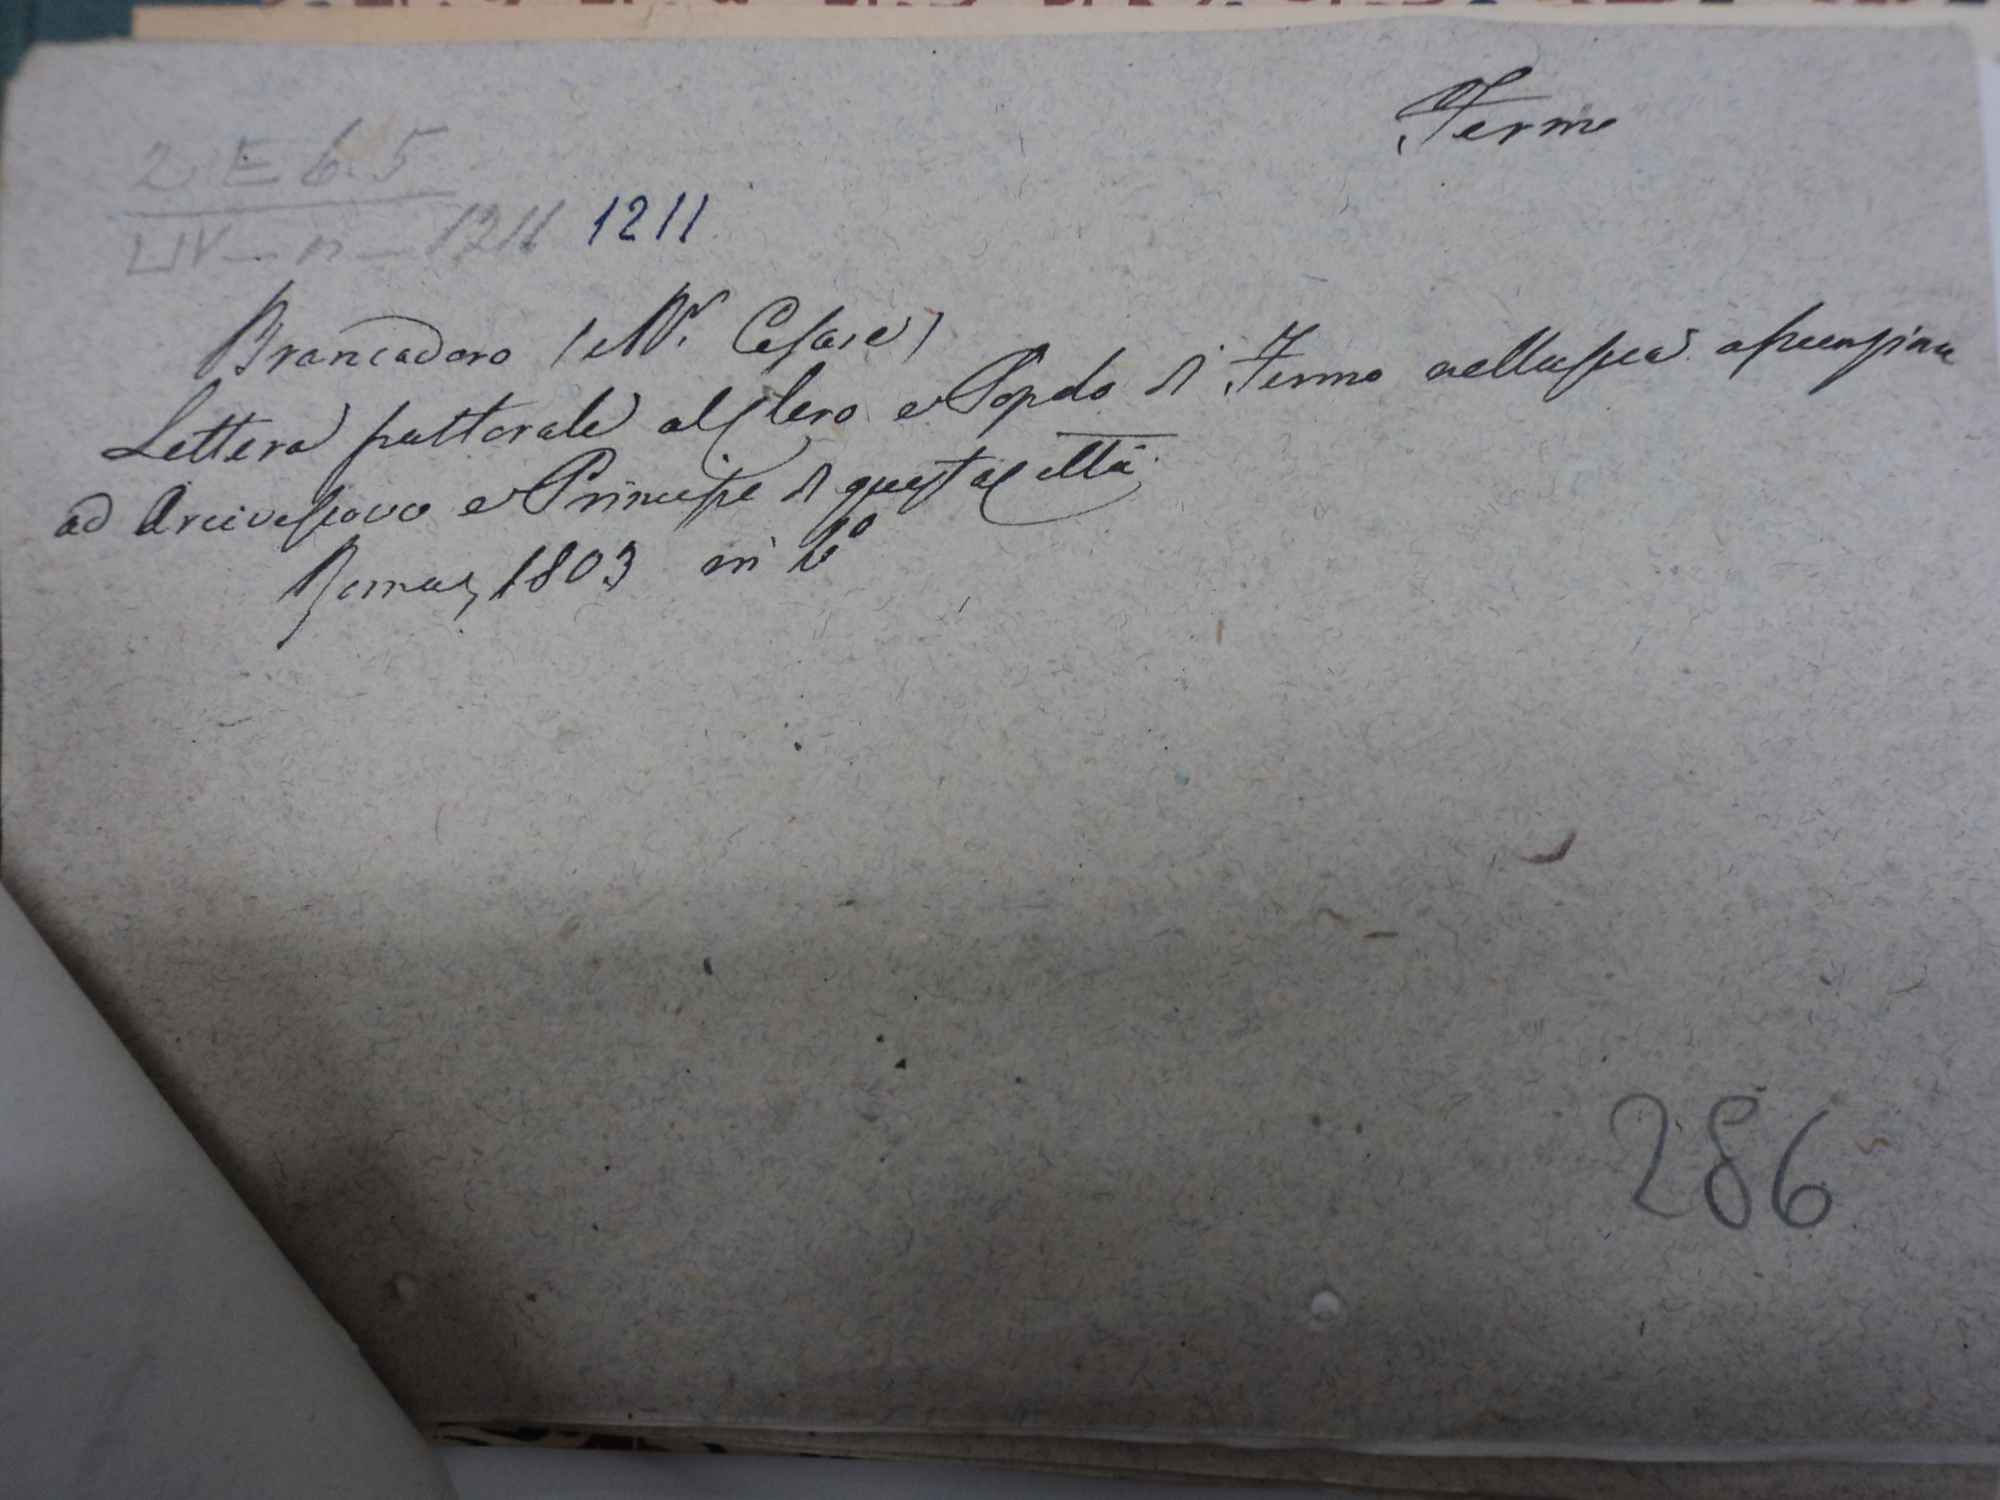 Fermo
2 E 6.5
LIV - n - 1211 1211
Brancadoro (Mr. Cesare)
Lettera pastorale al Clero e Popolo di Fermo nella sua assunzione
ad Arcivescovo e Principe di questa città
Roma, 1803 in 6º
286